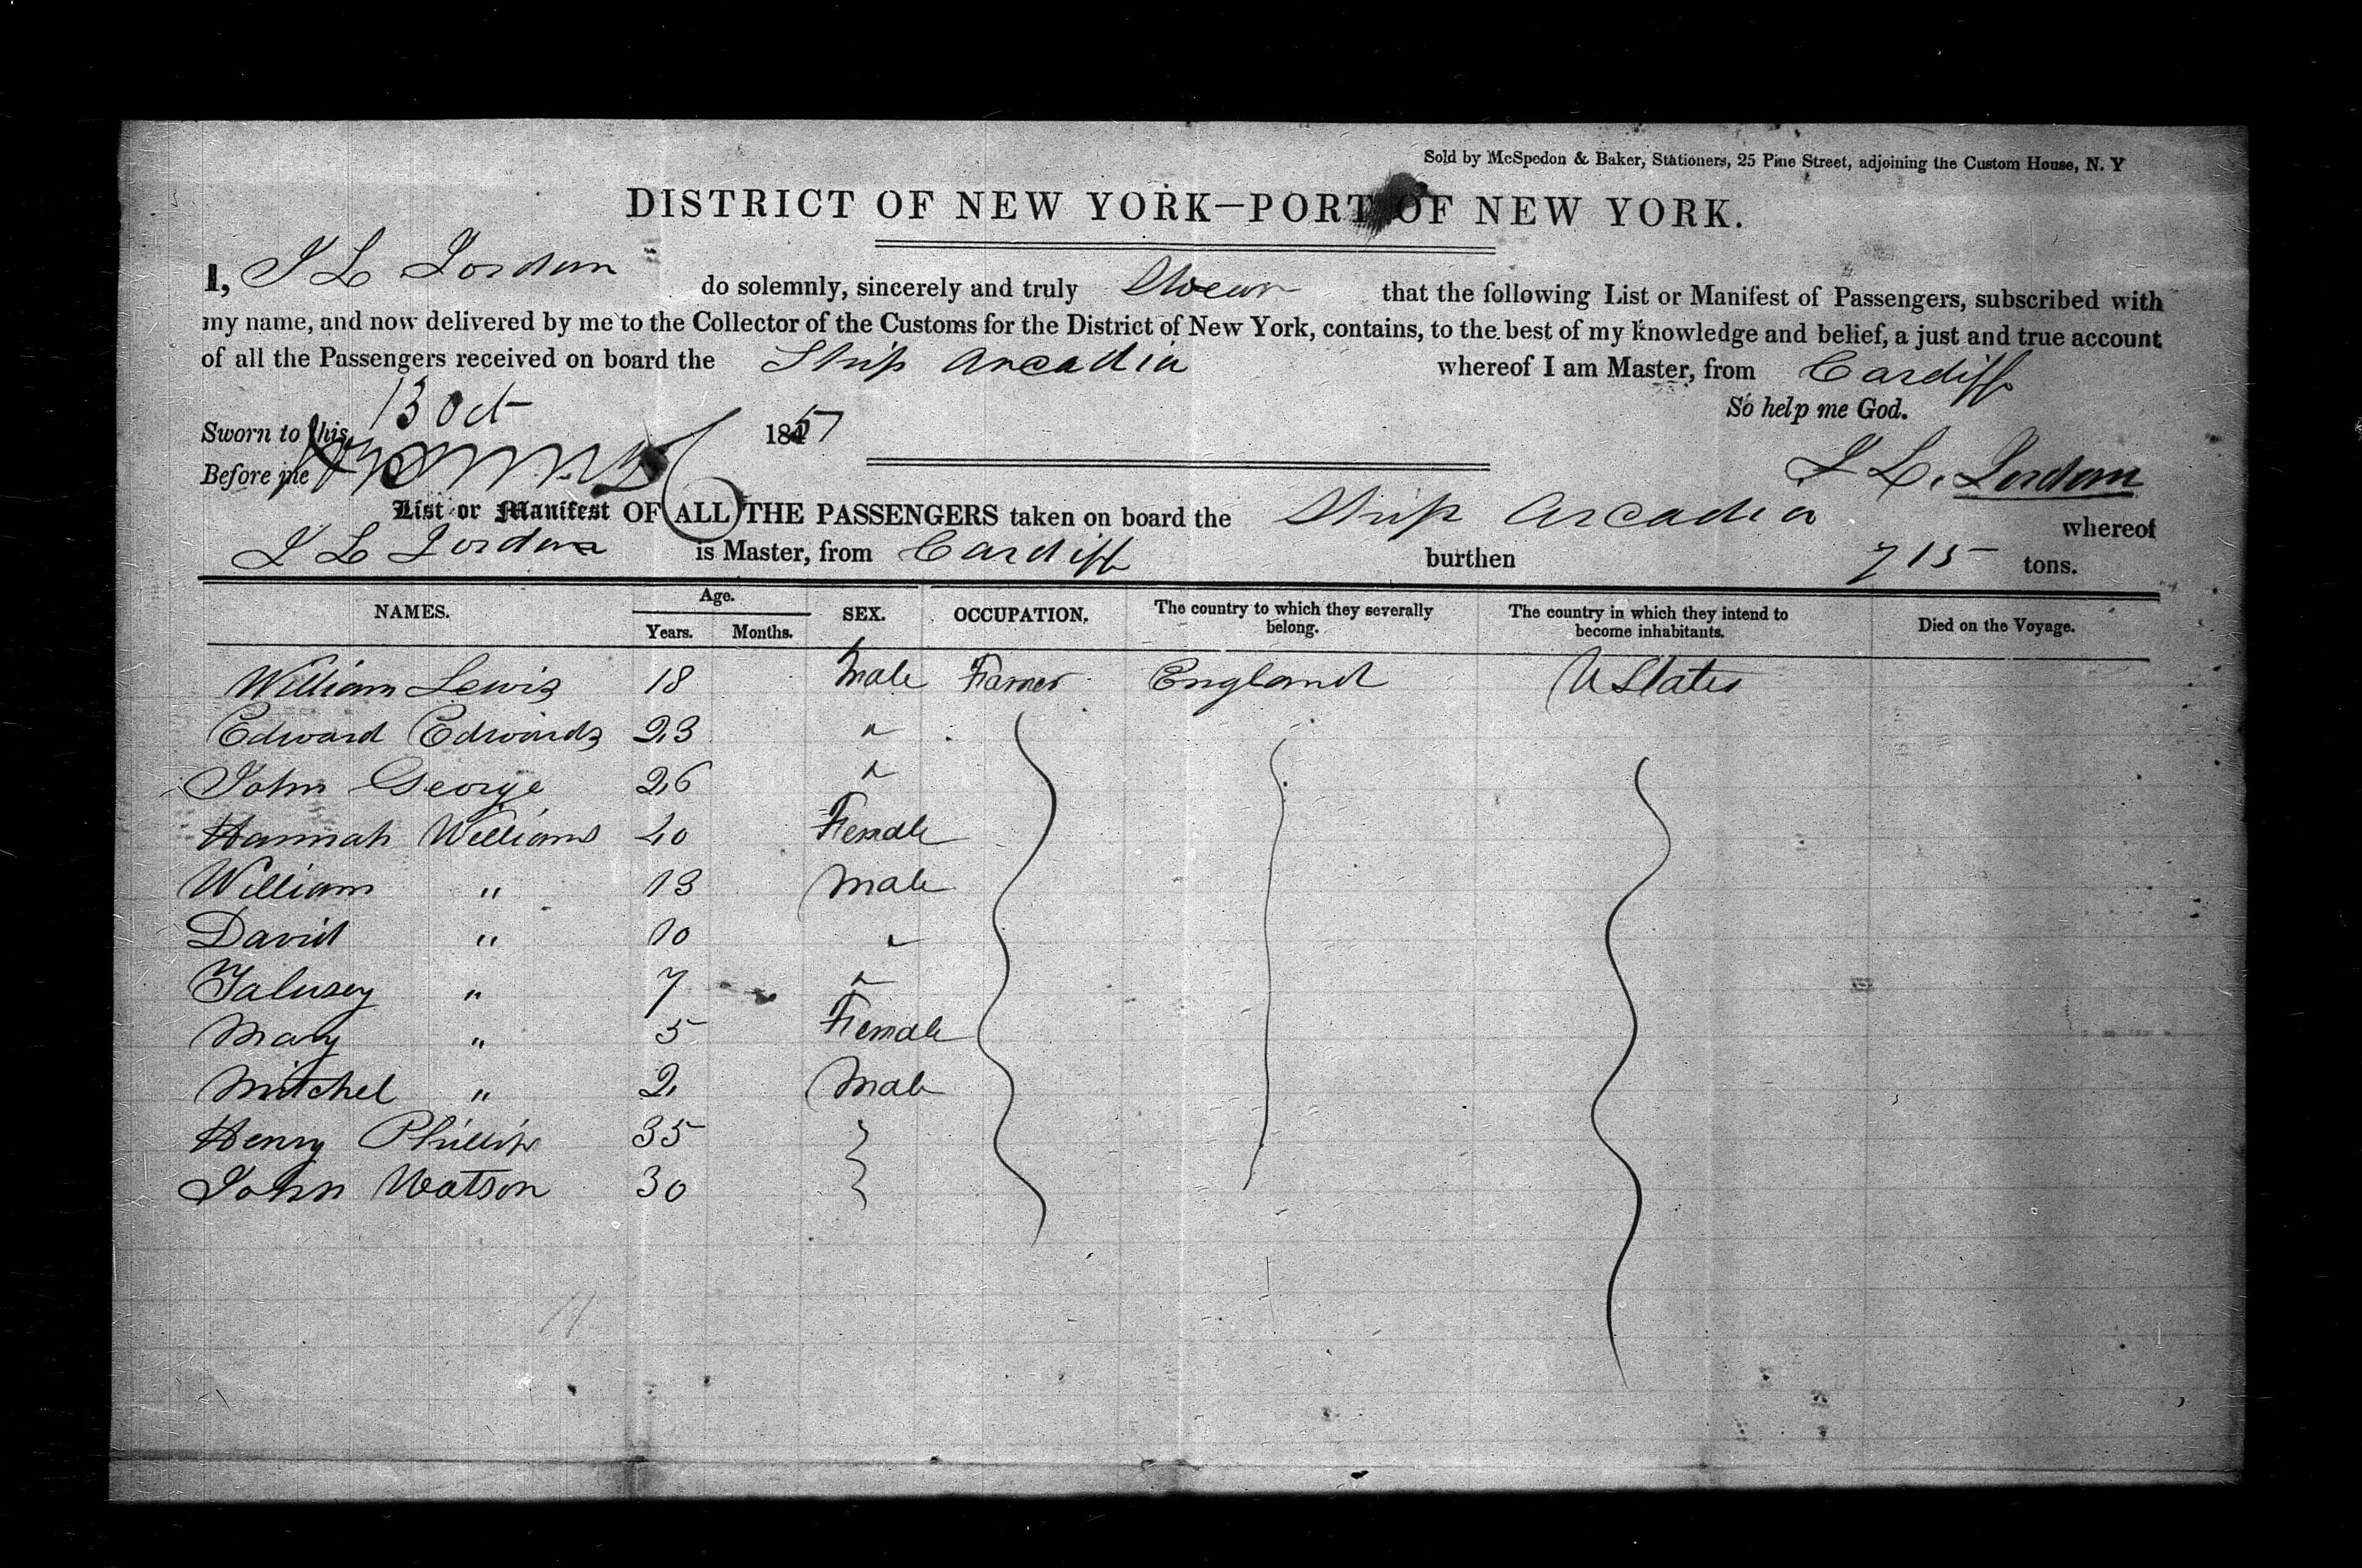 Sold by McSpedon & Baker, Stationers, 25 Pine Street, adjoining the Custom House, N. Y
DISTRICT OF NEW YORK—PORT OF NEW YORK.
I, J L Jordan do solemnly, sincerely and truly Swear that the following List or Manifest of Passengers, subscribed with
my name, and now delivered by me to the Collector of the Customs for the District of New York, contains, to the best of my knowledge and belief, a just and true account
of all the Passengers received on board the Ship Arcadia whereof I am Master, from Cardiff
So help me God.
Sworn to this 13 Oct 1857
Before me
J L. Jordan
List or Manifest OF ALL THE PASSENGERS taken on board the Ship Arcadia whereof
J L Jordan is Master, from Cardiff burthen 715 tons.
NAMES. Age. Years. Months. SEX. OCCUPATION. The country to which they severally belong. The country in which they intend to become inhabitants. Died on the Voyage.
William Lewis 18 Male Farmer England U States
Edward Edwards 23 "
John George 26 "
Hannah Williams 40 Female
William " 13 Male
David " 10 "
" 7 "
Mary " 5 Female
Mitchel " 2 Male
Henry Phillips 35
John Watson 30
11